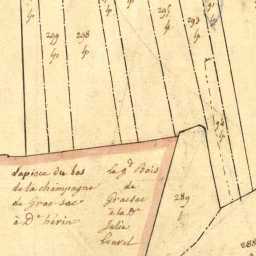 299
298
295
293
la piece du bas
de la champagne
de Gras-sac
à Dᵉ hérin
le gᵈ Bois
de
Grassac
à la Dᵉ
Julie
289
288